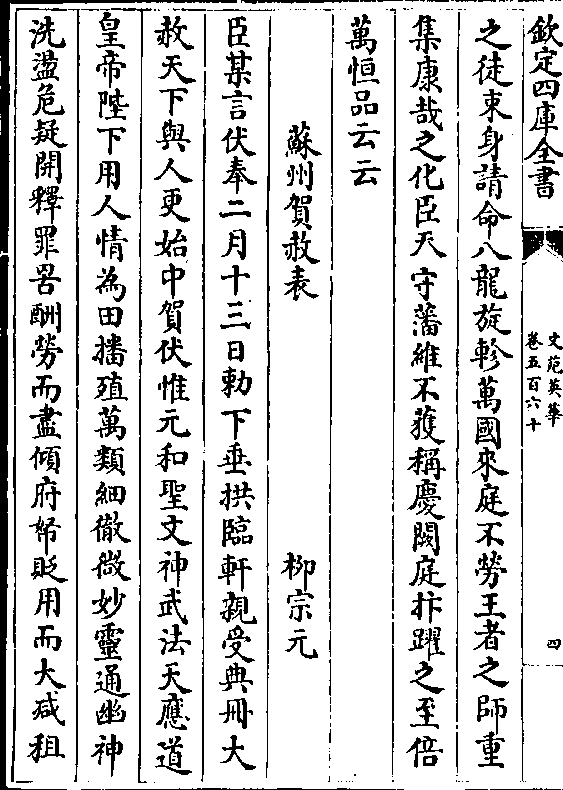 欽定四庫全書
文苑英華
卷五百六十
四
之徒束身請命八龍旋軫萬國來庭不勞王者之師重
集康哉之化臣天守藩維不獲稱慶闕庭抃躍之至倍
萬恒品云云
蘇州賀赦表
柳宗元
臣某言伏奉二月十三日勅下垂拱臨軒親受典冊大
赦天下與人更始中賀伏惟元和聖文神武法天應道
皇帝陛下用人情為田播殖萬類細徹微妙靈通幽神
洗盪危疑開釋罪罟酬勞而盡傾府帑貶用而大減租